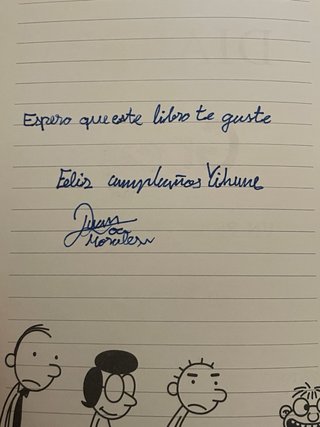 Espero que este libro te guste
Feliz cumpleaños Yihune
Juan
Morales